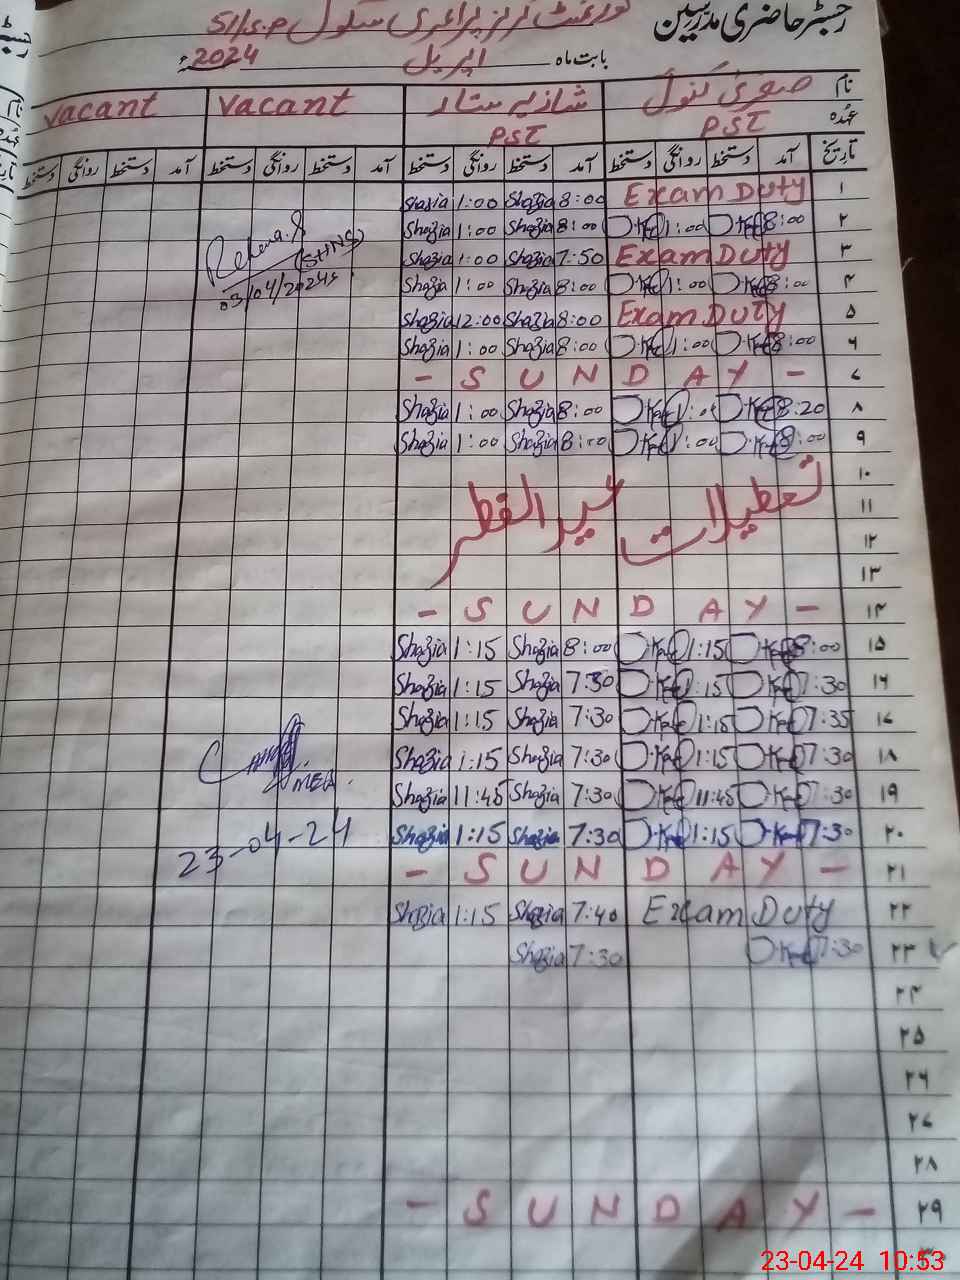 رجسٹر حاضری مدرسین گورنمنٹ گرلز پرائمری سکول 51/S.P
بابت ماہ اپریل 2024ء
نام صغریٰ کنول شازیہ ستار vacant vacant
عہدہ PST PST
تاریخ آمد دستخط روانگی دستخط آمد دستخط روانگی دستخط آمد دستخط روانگی دستخط آمد دستخط روانگی دستخط
۱ Exam Duty 8:00 Shazia 1:00 Shazia
۲ 8:00 1:00 8:00 Shazia 1:00 Shazia
۳ Exam Duty 7:50 Shazia 1:00 Shazia
۴ 8:00 1:00 8:00 Shazia 1:00 Shazia
03/04/2024
۵ Exam Duty 8:00 Shazia 12:00 Shazia
۶ 8:00 1:00 8:00 Shazia 1:00 Shazia
۷ - S U N D A Y -
۸ 8:20 8:00 Shazia 1:00 Shazia
۹ 8:00 1:00 8:00 Shazia 1:00 Shazia
۱۰
۱۱ تعطیلات عید الفطر
۱۲
۱۳
۱۴ - S U N D A Y -
۱۵ 8:00 1:15 8:00 Shazia 1:15 Shazia
۱۶ 7:30 1:15 7:30 Shazia 1:15 Shazia
۱۷ 7:35 1:15 7:30 Shazia 1:15 Shazia
۱۸ 7:30 1:15 7:30 Shazia 1:15 Shazia
۱۹ 7:30 11:45 7:30 Shazia 11:45 Shazia
۲۰ 7:30 1:15 7:30 Shazia 1:15 Shazia
23-04-24
۲۱ - S U N D A Y -
۲۲ Exam Duty 7:40 Shazia 1:15 Shazia
۲۳ 7:30 7:30 Shazia
۲۴
۲۵
۲۶
۲۷
۲۸
۲۹ - S U N D A Y -
۳۰
23-04-24 10:53